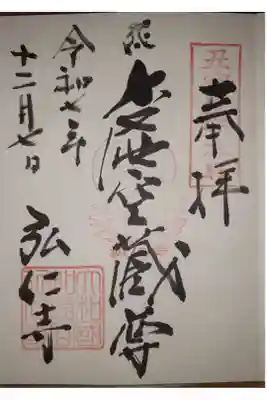 奉拝
虚空蔵尊
令和七年
十二月七日
弘仁寺